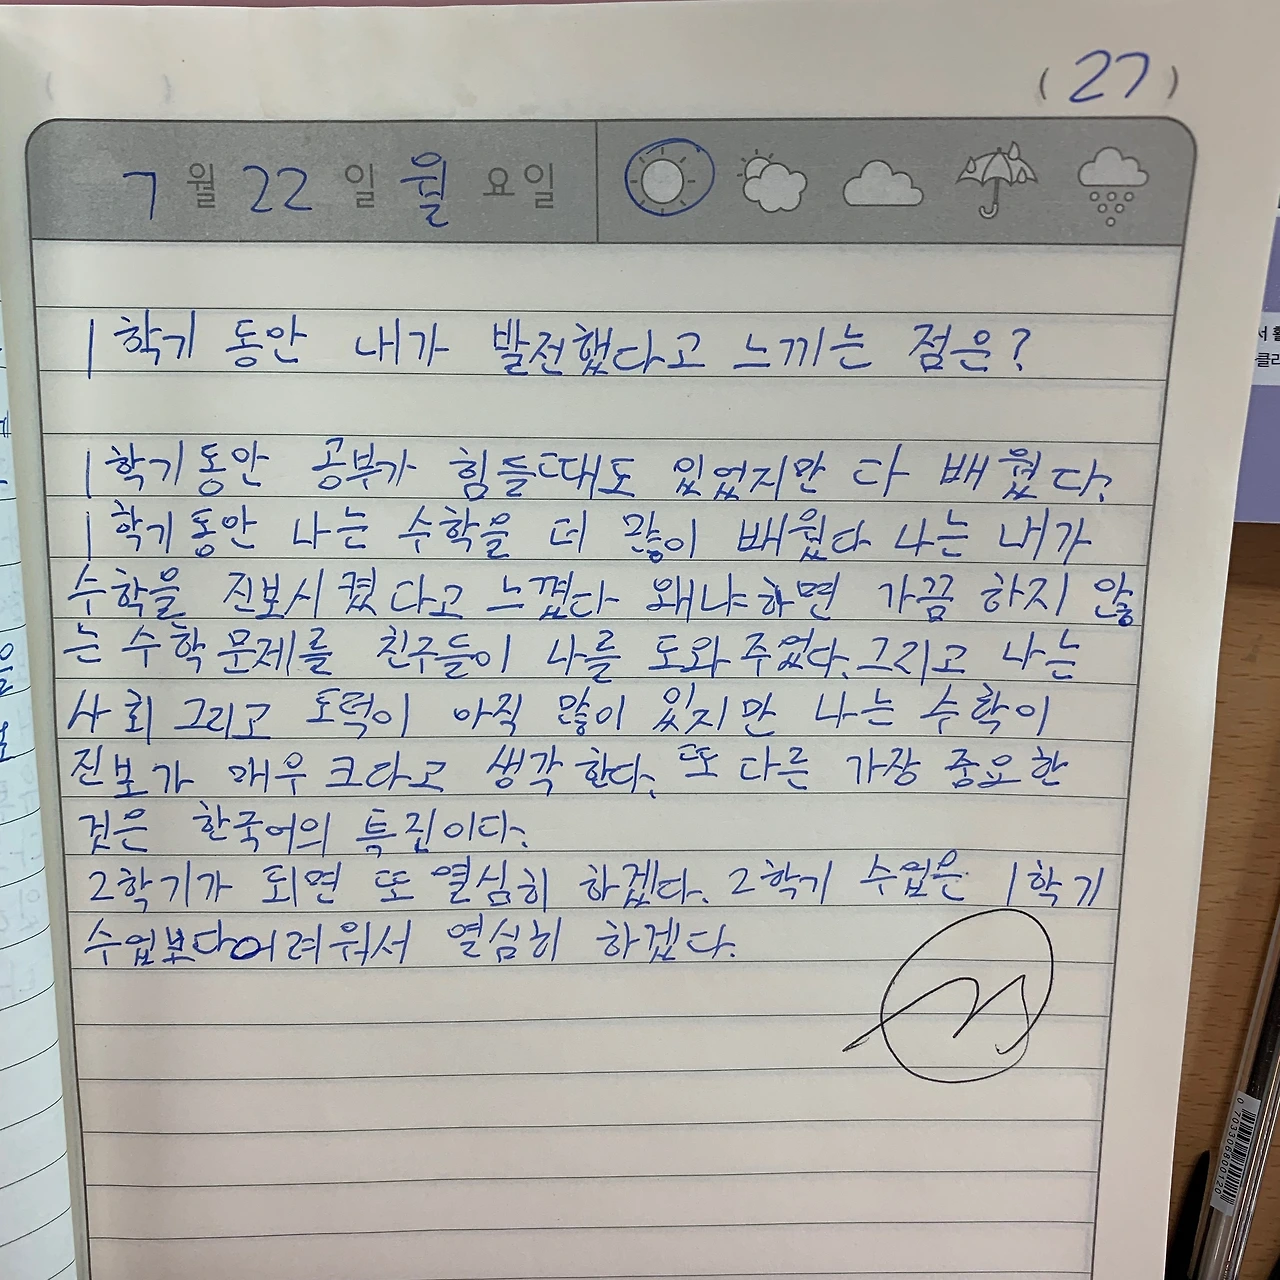 (27)
7월 22일 월요일
1학기 동안 내가 발전했다고 느끼는 점은?
1학기동안 공부가 힘들때도 있었지만 다 배웠다.
1학기동안 나는 수학을 더 많이 배웠다 나는 내가
수학을 진보시켰다고 느꼈다 왜냐하면 가끔 하지 않
는 수학 문제를 친구들이 나를 도와 주었다. 그리고 나는
사회 그리고 도덕이 아직 많이 있지만 나는 수학이
진보가 매우 크다고 생각한다. 또 다른 가장 중요한
것은 한국어의 특진이다.
2학기가 되면 또 열심히 하겠다. 2학기 수업은 1학기
수업보다어려워서 열심히 하겠다.
0 70330680012 0